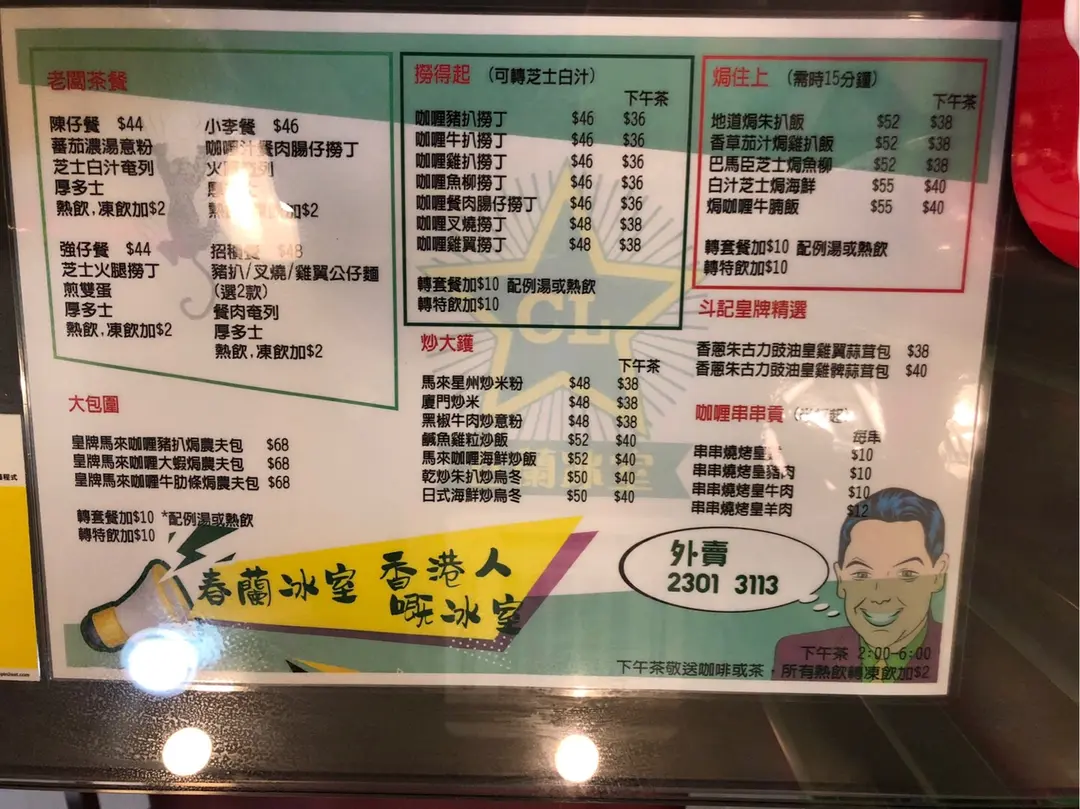 老闆茶餐
陳仔餐 $44
蕃茄濃湯意粉
芝士白汁奄列
厚多士
熱飲,凍飲加$2
小李餐 $46
咖喱汁餐肉腸仔撈丁
火
熱 加$2
強仔餐 $44
芝士火腿撈丁
煎雙蛋
厚多士
熱飲,凍飲加$2
招積 $48
豬扒/叉燒/雞翼公仔麵
(選2款)
餐肉奄列
厚多士
熱飲,凍飲加$2
大包圍
皇牌馬來咖喱豬扒焗農夫包 $68
皇牌馬來咖喱大蝦焗農夫包 $68
皇牌馬來咖喱牛肋條焗農夫包 $68
轉套餐加$10 *配例湯或熱飲
轉特飲加$10
撈得起 (可轉芝士白汁)
下午茶
咖喱豬扒撈丁 $46 $36
咖喱牛扒撈丁 $46 $36
咖喱雞扒撈丁 $46 $36
咖喱魚柳撈丁 $46 $36
咖喱餐肉腸仔撈丁 $46 $36
咖喱叉燒撈丁 $48 $38
咖喱雞翼撈丁 $48 $38
轉套餐加$10 配例湯或熱飲
轉特飲加$10
炒大鑊
下午茶
馬來星州炒米粉 $48 $38
廈門炒米 $48 $38
黑椒牛肉炒意粉 $48 $38
鹹魚雞粒炒飯 $52 $40
馬來咖喱海鮮炒飯 $52 $40
乾炒朱扒炒烏冬 $50 $40
日式海鮮炒烏冬 $50 $40
焗住上 (需時15分鐘)
下午茶
地道焗朱扒飯 $52 $38
香草茄汁焗雞扒飯 $52 $38
巴馬臣芝士焗魚柳 $52 $38
白汁芝士焗海鮮 $55 $40
焗咖喱牛腩飯 $55 $40
轉套餐加$10 配例湯或熱飲
轉特飲加$10
斗記皇牌精選
香蔥朱古力豉油皇雞翼蒜茸包 $38
香蔥朱古力豉油皇雞髀蒜茸包 $40
咖喱串串貢
每串
串串燒烤皇 $10
串串燒烤皇豬肉 $10
串串燒烤皇牛肉 $10
串串燒烤皇羊肉 $12
CL
蘭冰室
春蘭冰室 香港人
嘅冰室
外賣
2301 3113
下午茶 2:00-6:00
下午茶敬送咖啡或茶,所有熱飲轉凍飲加$2